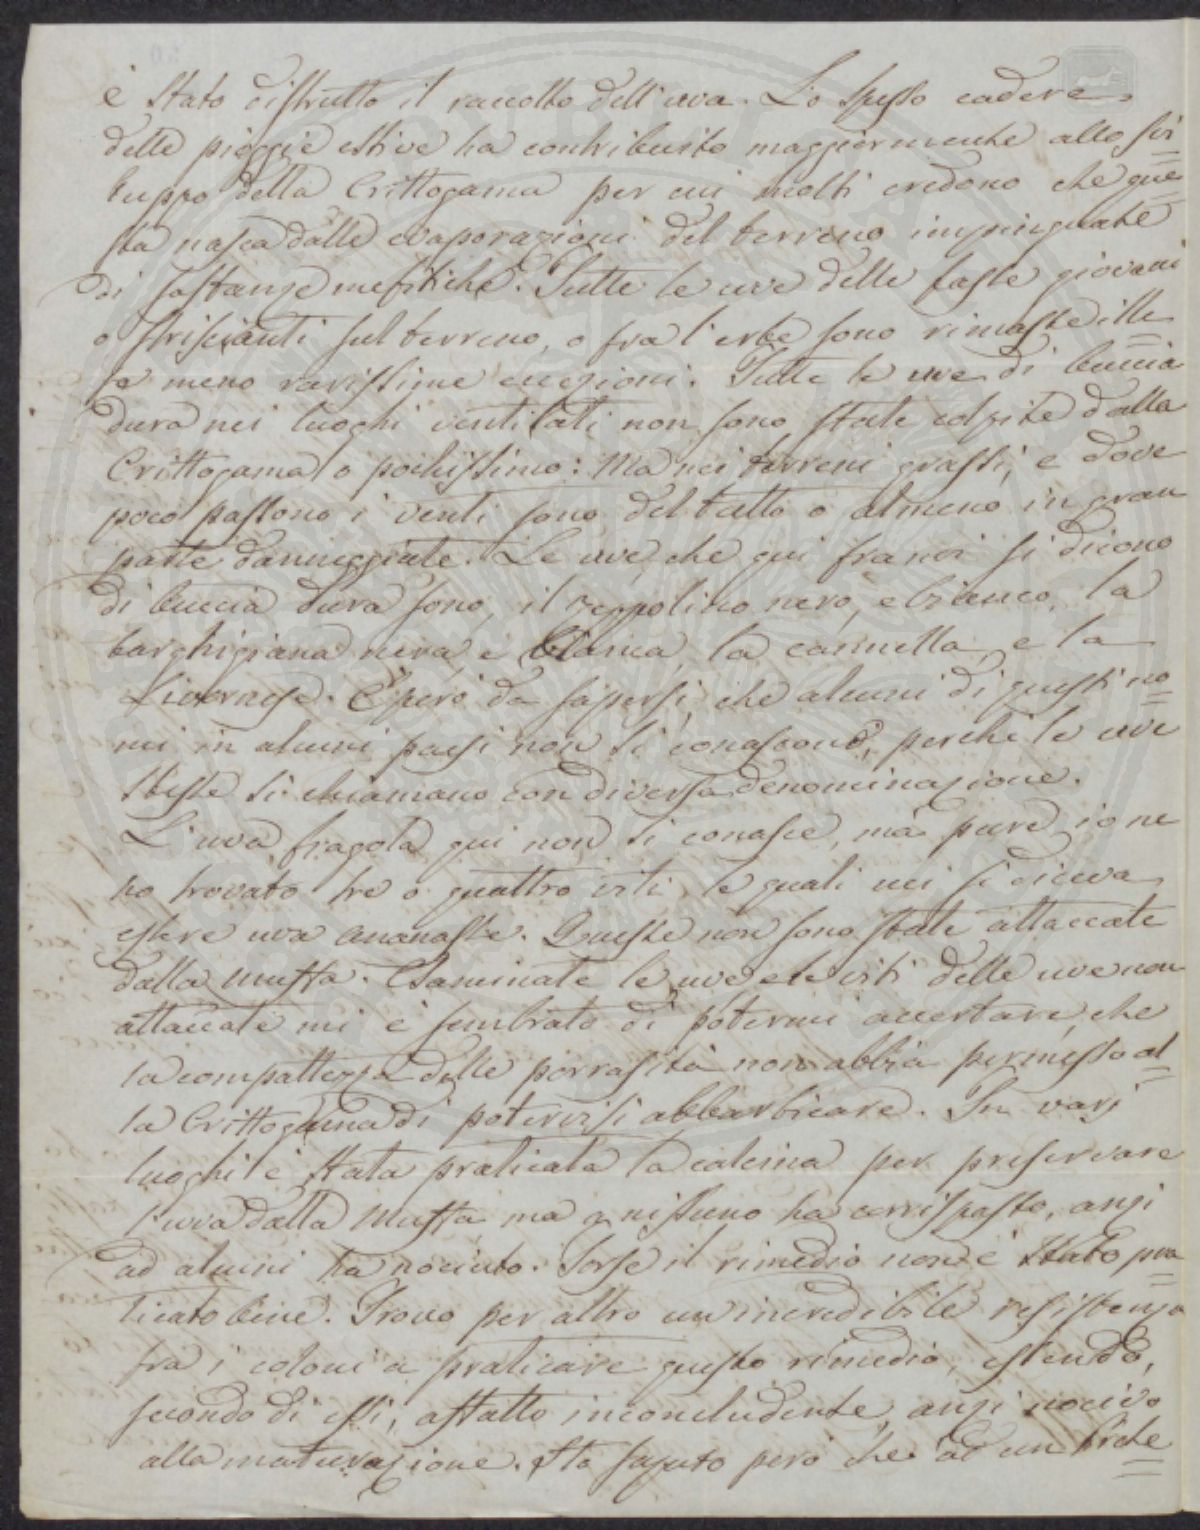 è stato distrutto il raccolto dell'uva. Lo spesso cadere
delle pioggie estive ha contribuito maggiormente allo svi=
luppo della Crittogama per cui molti credono che que=
sta nasca dalle evaporazioni del terreno impinguate
di sostanze mefitiche. Tutte le uve delle basse giovani
o striscianti sul terreno, o fra l'erbe sono rimaste ille=
se meno rarissime eccezioni. Tutte le uve di buccia
dura nei luoghi ventilati non sono state colpite dalla
Crittogama o pochissimo: Ma nei terreni grassi, e dove
poco passono i venti sono del tutto o almeno in gran
parte danneggiate. Le uve, che qui fra noi si dicono
di buccia dura sono, il zeppolino nero, e bianco, la
barghigiana nera, e bianca, la cannella, e la
Livornese. È però da sapersi, che alcuni di questi no=
mi in alcuni paesi non si conoscono, perchè le uve
stesse si chiamano con diversa denominazione.
L'uva fragola qui non si conosce, ma pure io ne
ho trovato tre o quattro viti, le quali mi si diceva
essere uva ananasse. Queste non sono state attaccate
dalla muffa. Esaminate le uve e le viti delle uve non
attaccate mi è sembrato di potermi accertare, che
la compattezza delle porrosità non abbia permesso al=
la Crittogama di potervisi abbarbicare. In varj
luoghi è stata praticata la calcina per preservare
l'uva dalla Muffa, ma a nissuno ha corrisposto, anzi
ad alcuni ha nociuto. Forse il rimedio non è stato pra=
ticato bene. Trovo per altro un'incredibile resistenza
fra i coloni a praticare questo rimedio, essendo,
secondo di essi, affatto inconcludente, anzi nocivo
alla maturazione. Ho saputo però che ad un Prete=